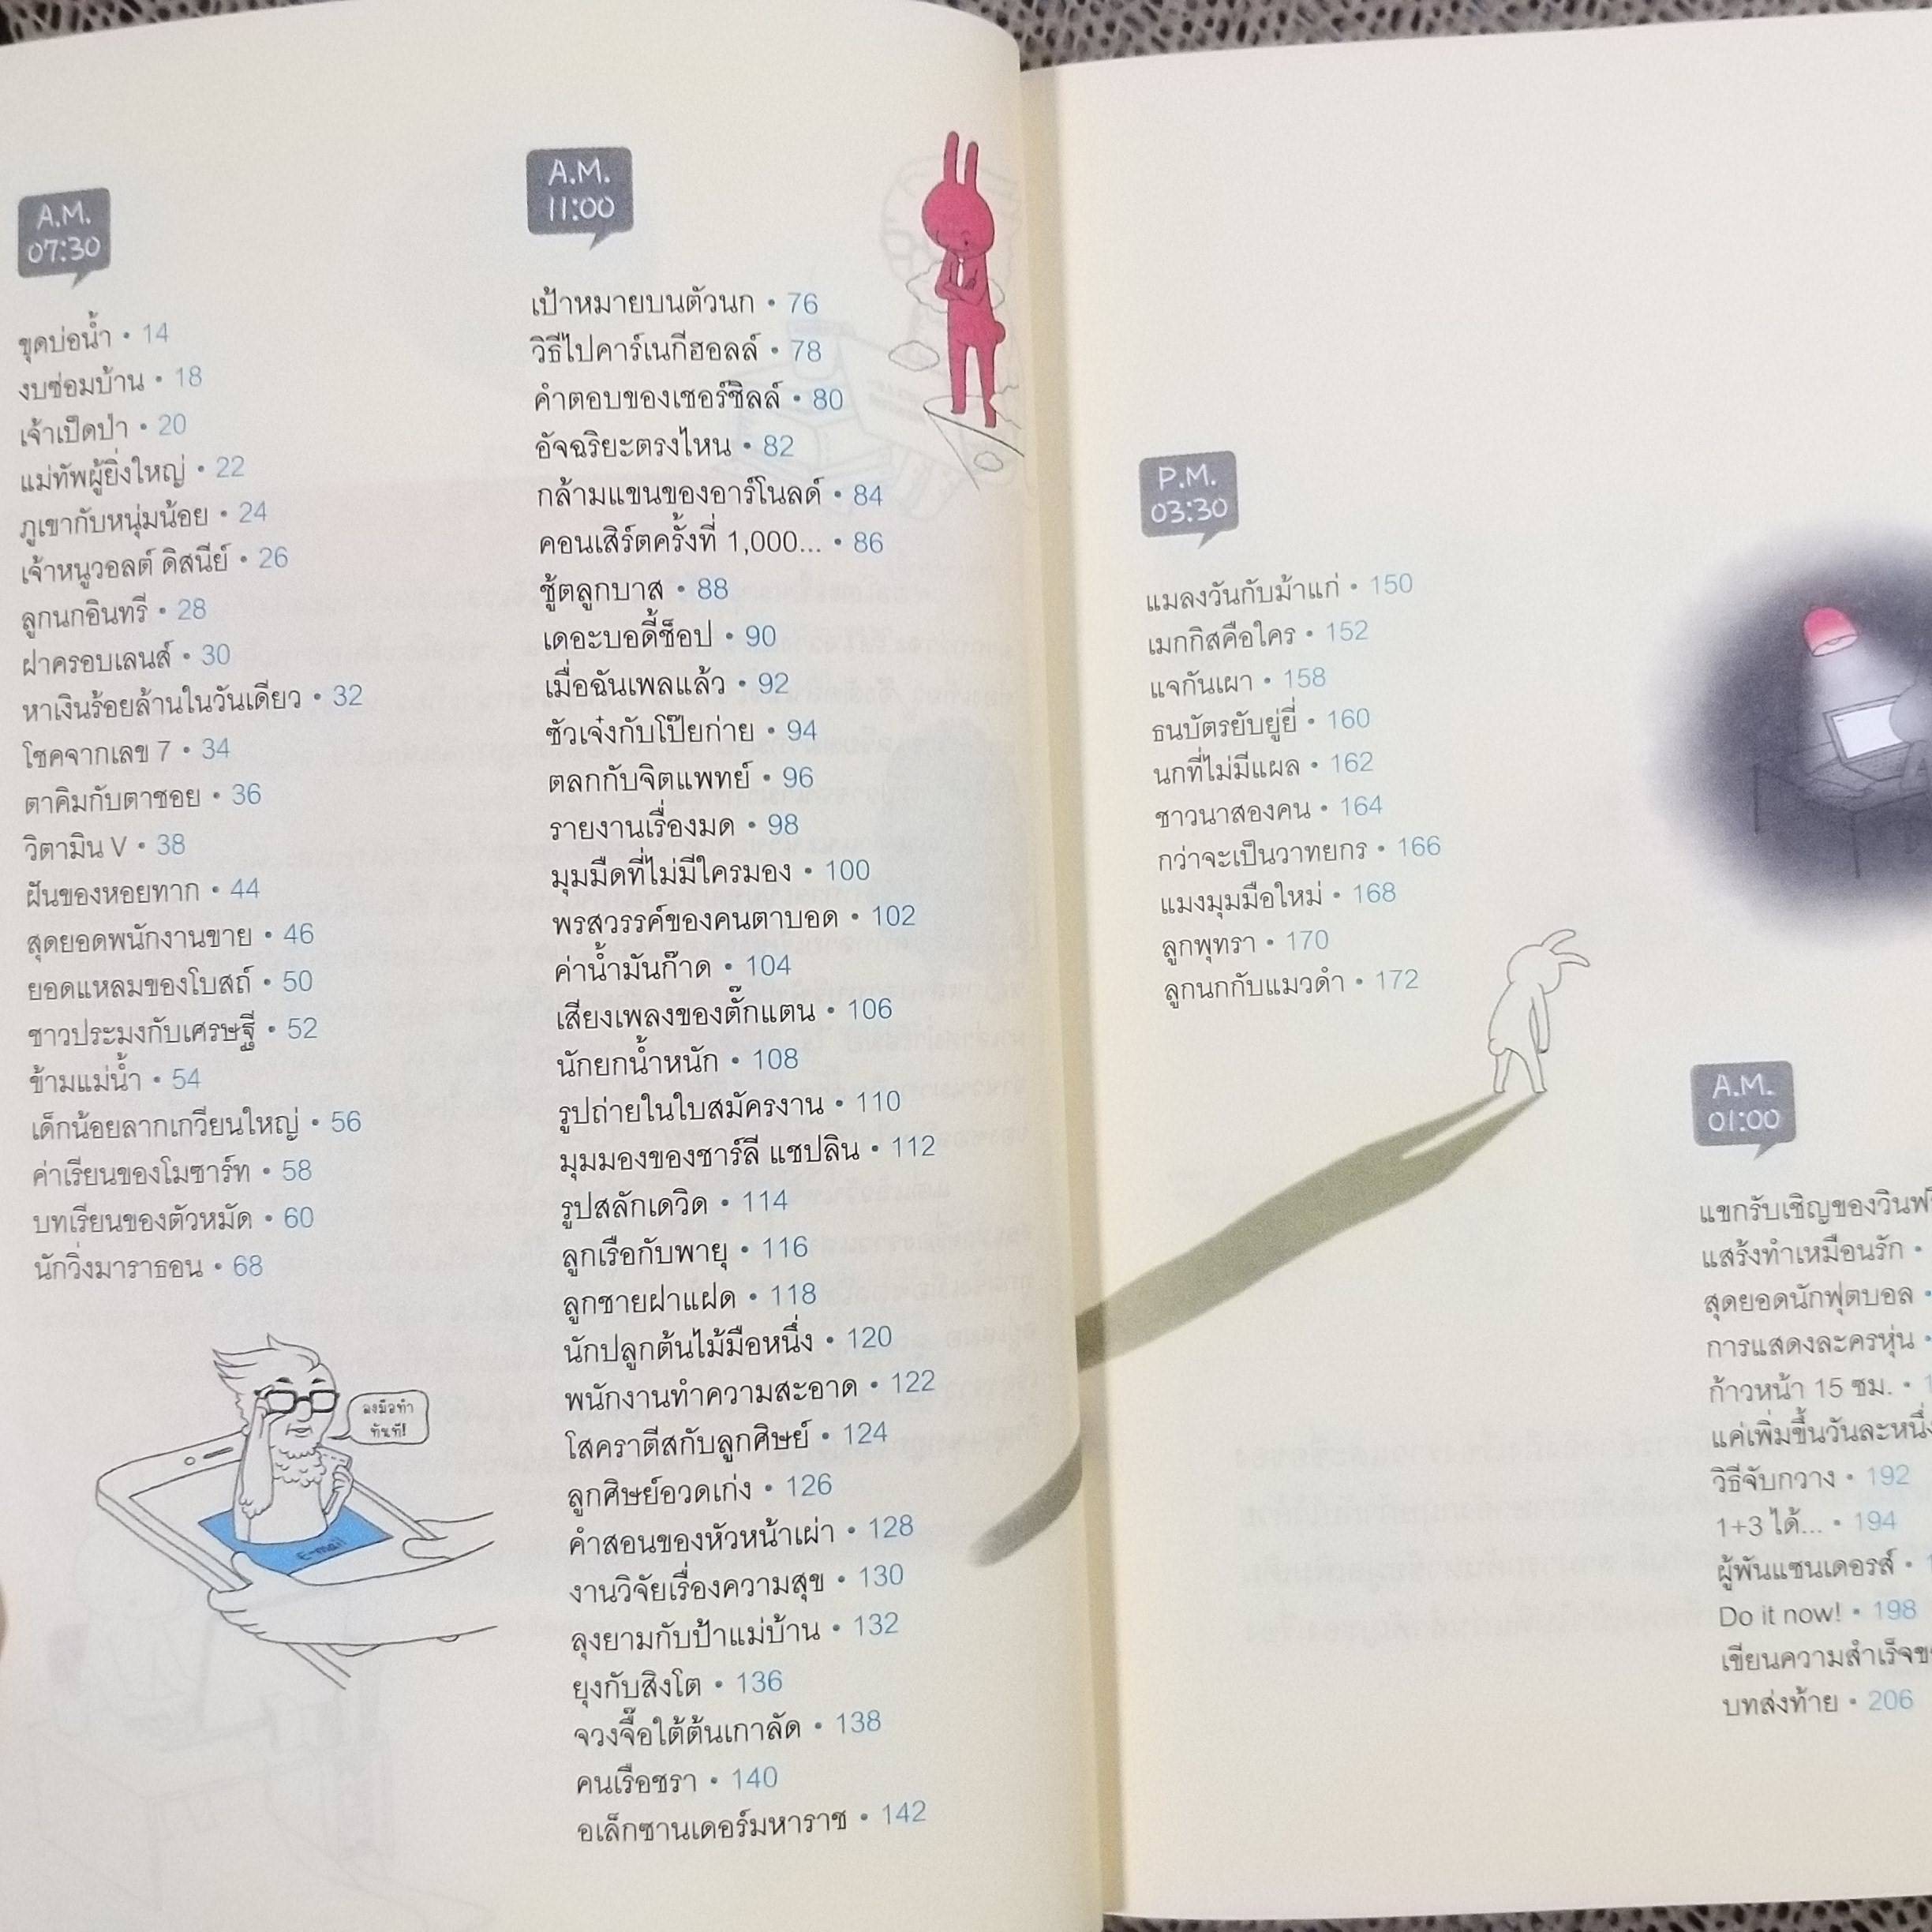 A.M.
07:30
ขุดบ่อน้ำ • 14
งบซ่อมบ้าน • 18
เจ้าเป็ดป่า • 20
แม่ทัพผู้ยิ่งใหญ่ • 22
ภูเขากับหนุ่มน้อย • 24
เจ้าหนูวอลต์ ดิสนีย์ • 26
ลูกนกอินทรี • 28
ฝาครอบเลนส์ • 30
หาเงินร้อยล้านในวันเดียว • 32
โชคจากเลข 7 • 34
ตาคิมกับตาชอย • 36
วิตามิน V • 38
ฝันของหอยทาก • 44
สุดยอดพนักงานขาย • 46
ยอดแหลมของโบสถ์ • 50
ชาวประมงกับเศรษฐี • 52
ข้ามแม่น้ำ • 54
เด็กน้อยลากเกวียนใหญ่ • 56
ค่าเรียนของโมซาร์ท • 58
บทเรียนของตัวหมัด • 60
นักวิ่งมาราธอน • 68
ลงมือทำ
ทันที!
E-mail
A.M.
11:00
เป้าหมายบนตัวนก • 76
วิธีไปคาร์เนกีฮอลล์ • 78
คำตอบของเชอร์ชิลล์ • 80
อัจฉริยะตรงไหน • 82
กล้ามแขนของอาร์โนลด์ • 84
คอนเสิร์ตครั้งที่ 1,000... • 86
ชู้ตลูกบาส • 88
เดอะบอดี้ช็อป • 90
เมื่อฉันเพลแล้ว • 92
ซัวเจ๋งกับโป๊ยก่าย • 94
ตลกกับจิตแพทย์ • 96
รายงานเรื่องมด • 98
มุมมืดที่ไม่มีใครมอง • 100
พรสวรรค์ของคนตาบอด • 102
ค่าน้ำมันก๊าด • 104
เสียงเพลงของตั๊กแตน • 106
นักยกน้ำหนัก • 108
รูปถ่ายในใบสมัครงาน • 110
มุมมองของชาร์ลี แชปลิน • 112
รูปสลักเดวิด • 114
ลูกเรือกับพายุ • 116
ลูกชายฝาแฝด • 118
นักปลูกต้นไม้มือหนึ่ง • 120
พนักงานทำความสะอาด • 122
โสคราตีสกับลูกศิษย์ • 124
ลูกศิษย์อวดเก่ง • 126
คำสอนของหัวหน้าเผ่า • 128
งานวิจัยเรื่องความสุข • 130
ลุงยามกับป้าแม่บ้าน • 132
ยุงกับสิงโต • 136
จวงจื๊อใต้ต้นเกาลัด • 138
คนเรือชรา • 140
อเล็กซานเดอร์มหาราช • 142
P.M.
03:30
แมลงวันกับม้าแก่ • 150
เมกกิสคือใคร • 152
แจกันเผา • 158
ธนบัตรยับยู่ยี่ • 160
นกที่ไม่มีแผล • 162
ชาวนาสองคน • 164
กว่าจะเป็นวาทยกร • 166
แมงมุมมือใหม่ • 168
ลูกพุทรา • 170
ลูกนกกับแมวดำ • 172
A.M.
01:00
แขกรับเชิญของ
แสร้งทำเหมือนรัก •
สุดยอดนักฟุตบอล •
การแสดงละครหุ่น •
ก้าวหน้า 15 ชม. •
แค่เพิ่มขึ้นวันละหนึ่ง
วิธีจับกวาง • 192
1+3 ได้... • 194
ผู้พันแซนเดอรส์ •
Do it now! • 198
เขียนความสำเร็จ
บทส่งท้าย • 206